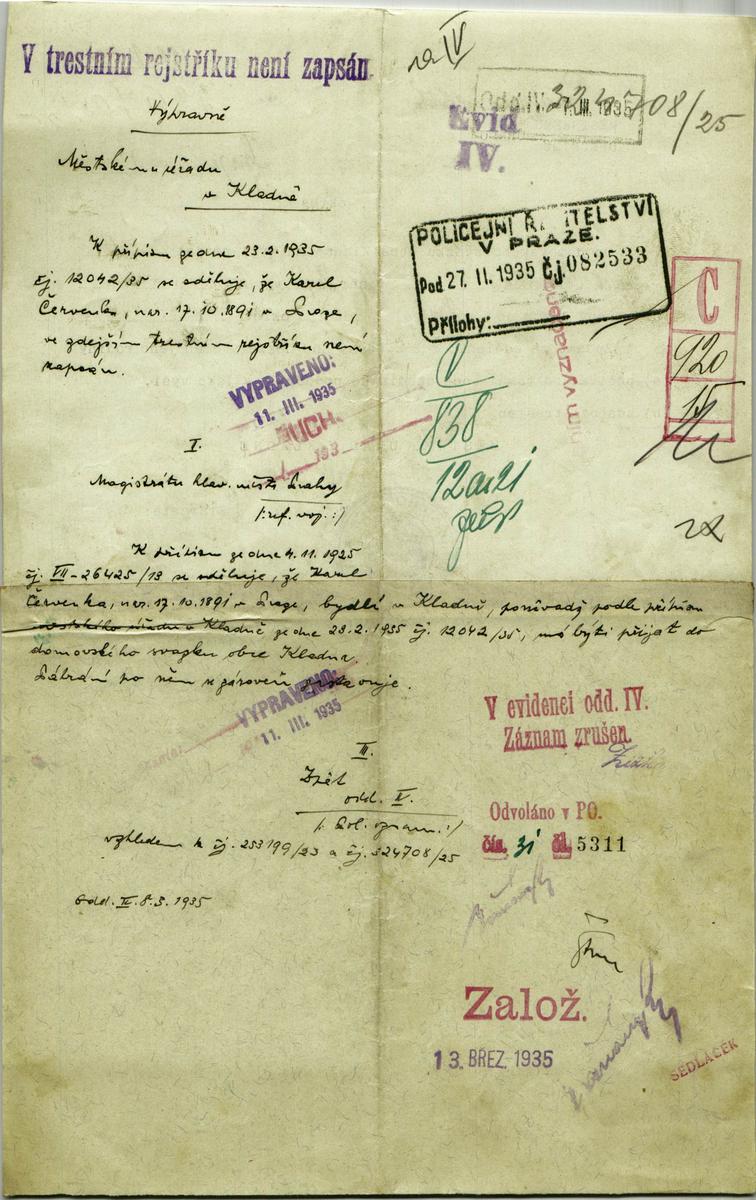 V trestním rejstříku není zapsán
Výpravně
Městskému úřadu
v Kladně
K přípisu ze dne 23.2.1935
čj. 12042/35 se sděluje, že Karel
Červenka, nar. 17.10.1891 v Praze,
ve zdejším trestním rejstříku není
zapsán.
VYPRAVENO:
11. III. 1935
I.
Magistrátu hlav. města Prahy
/:ref. voj.:/
K přípisu ze dne 4.11.1925
čj. VII-26425/13 se sděluje, že Karel
Červenka, nar. 17.10.1891 v Praze, bydlí v Kladně, podle přípisu
městského úřadu v Kladně ze dne 23.2.1935 čj. 12042/35, má býti přijat do
domovského svazku obce Kladna.
Pátrání po něm se zároveň
VYPRAVENO:
11. III. 1935
II.
Zpět
odd. IV.
vzhledem k čj. 253199/23 a čj. 324708/25
Odd. II. 8.3.1935
na IV
Odd. IV. III. 1935
324708/25
Evid
IV.
POLICEJNÍ ŘEDITELSTVÍ
V PRAZE.
Pod 27. II. 1935 Čj. 082533
Přílohy:
C
920
15
V
838
V evidenci odd. IV.
Záznam zrušen.
Odvoláno v PO.
čís. 31 čl. 5311
Založ.
13. BŘEZ. 1935
SEDLÁČEK